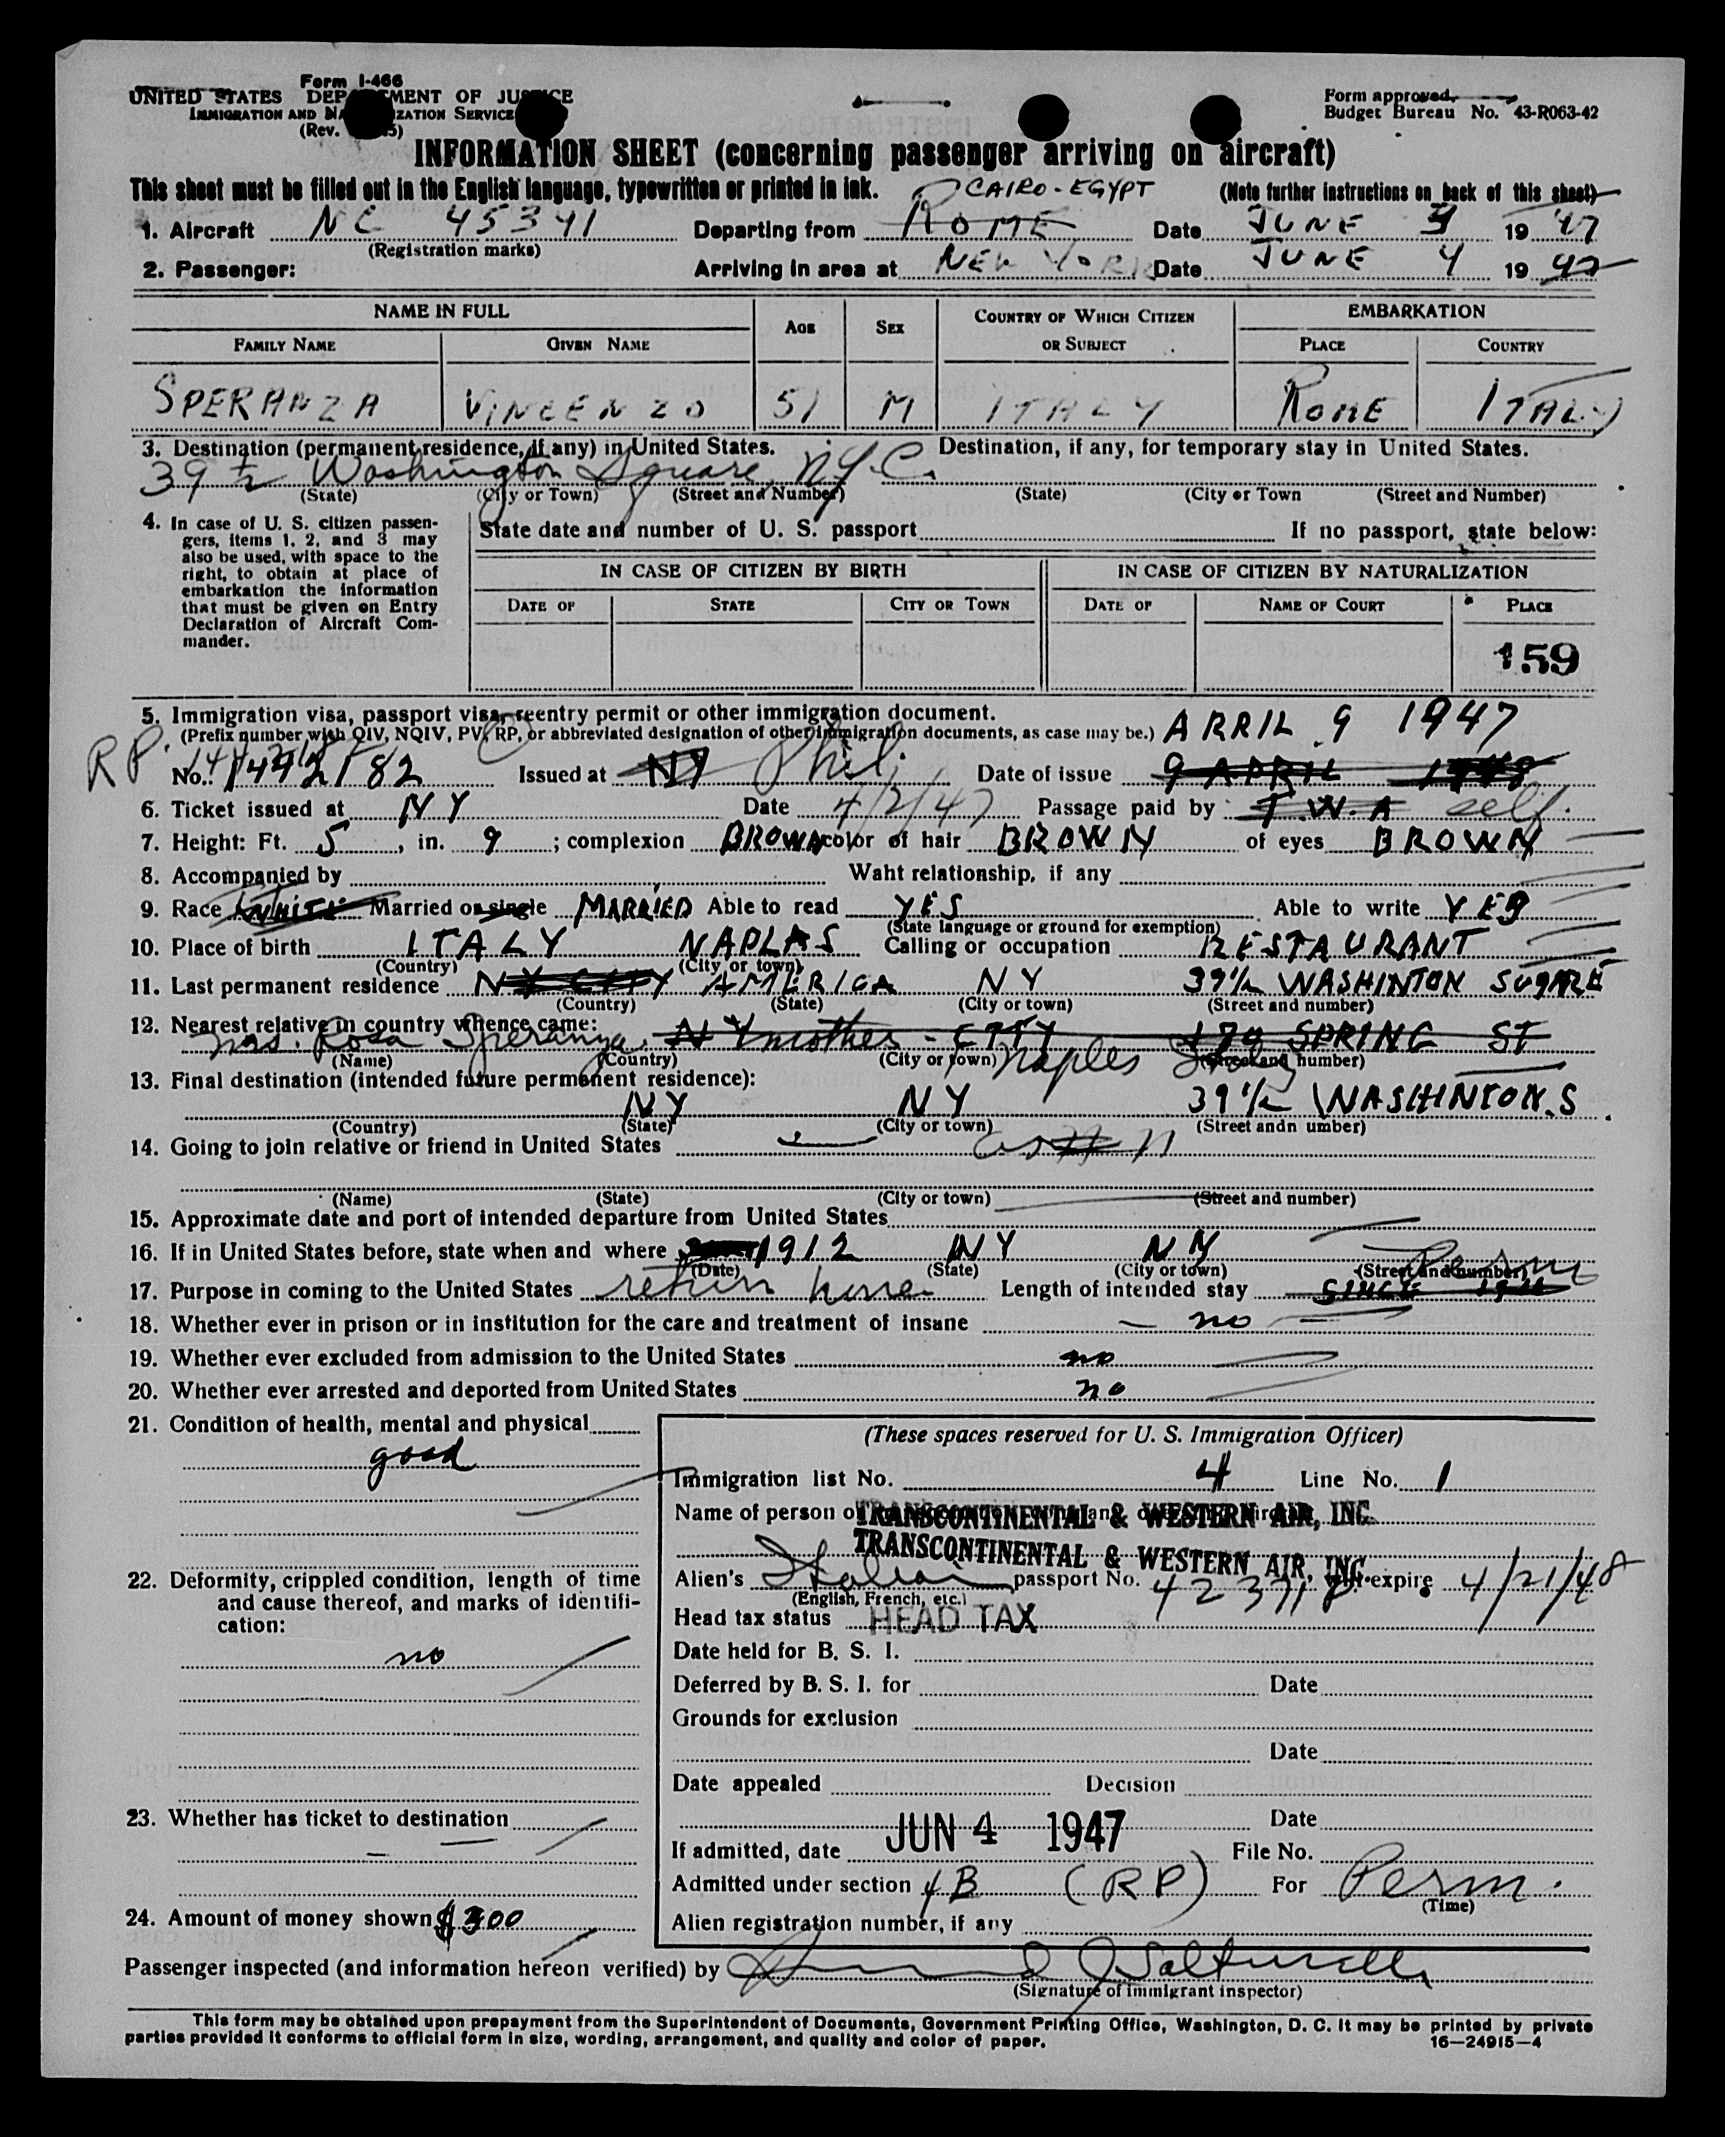 Form I-466
UNITED STATES DEPARTMENT OF JUSTICE
IMMIGRATION AND NATURALIZATION SERVICE
(Rev.
Form approved.
Budget Bureau No. 43-R063-42
INFORMATION SHEET (concerning passenger arriving on aircraft)
This sheet must be filled out in the English language, typewritten or printed in ink. (Note further instructions on back of this sheet)
CAIRO - EGYPT
1. Aircraft NC 45341 Departing from ROME Date JUNE 3 19 47
(Registration marks)
2. Passenger: Arriving in area at NEW YORK Date JUNE 4 19 47
NAME IN FULL AGE SEX COUNTRY OF WHICH CITIZEN OR SUBJECT EMBARKATION
FAMILY NAME GIVEN NAME PLACE COUNTRY
SPERANZA VINCENZO 51 M ITALY ROME ITALY
3. Destination (permanent residence, if any) in United States. Destination, if any, for temporary stay in United States.
39 ½ Washington Square, N.Y.C.
(State) (City or Town) (Street and Number) (State) (City or Town (Street and Number)
4. In case of U. S. citizen passengers, items 1, 2, and 3 may also be used, with space to the right, to obtain at place of embarkation the information that must be given on Entry Declaration of Aircraft Commander.
State date and number of U. S. passport If no passport, state below:
IN CASE OF CITIZEN BY BIRTH IN CASE OF CITIZEN BY NATURALIZATION
DATE OF STATE CITY OR TOWN DATE OF NAME OF COURT PLACE
159
5. Immigration visa, passport visa, reentry permit or other immigration document.
(Prefix number with QIV, NQIV, PV, RP, or abbreviated designation of other immigration documents, as case may be.) APRIL 9 1947
RP. No. 1492182 Issued at NY Phil. Date of issue 9 APRIL
6. Ticket issued at NY Date 4/2/47 Passage paid by T.W.A self.
7. Height: Ft. 5, in. 9; complexion BROWN color of hair BROWN of eyes BROWN
8. Accompanied by Waht relationship, if any
9. Race WHITE Married or single MARRIED Able to read YES Able to write YES
(State language or ground for exemption)
10. Place of birth ITALY NAPLAS Calling or occupation RESTAURANT
(Country) (City or town)
11. Last permanent residence NY CITY AMERICA NY 39½ WASHINTON SUQARE
(Country) (State) (City or town) (Street and number)
12. Nearest relative in country whence came:
Mrs. Rosa Speranza. NY mother - CITY 178 SPRING ST
(Name) (Country) (City or town) Naples Italy (Street and number)
13. Final destination (intended future permanent residence):
NY NY 39½ WASHINTON.S.
(Country) (State) (City or town) (Street andn umber)
14. Going to join relative or friend in United States
(Name) (State) (City or town) (Street and number)
15. Approximate date and port of intended departure from United States
16. If in United States before, state when and where 1912 NY NY
(Date) (State) (City or town) (Street and number)
17. Purpose in coming to the United States return home Length of intended stay SINCE Perm
18. Whether ever in prison or in institution for the care and treatment of insane - no
19. Whether ever excluded from admission to the United States no
20. Whether ever arrested and deported from United States no
21. Condition of health, mental and physical
good
22. Deformity, crippled condition, length of time and cause thereof, and marks of identification:
no
23. Whether has ticket to destination
24. Amount of money shown $300
(These spaces reserved for U. S. Immigration Officer)
Immigration list No. 4 Line No. 1
Name of person or TRANSCONTINENTAL & WESTERN AIR, INC.
TRANSCONTINENTAL & WESTERN AIR, INC.
Alien's Italian passport No. 42371 will expire 4/21/48
(English, French, etc.)
Head tax status HEAD TAX
Date held for B. S. I.
Deferred by B. S. I. for Date
Grounds for exclusion
Date
Date appealed Decision
Date
If admitted, date JUN 4 1947 File No.
Admitted under section 4B (RP) For Perm.
(Time)
Alien registration number, if any
Passenger inspected (and information hereon verified) by
(Signature of immigrant inspector)
This form may be obtained upon prepayment from the Superintendent of Documents, Government Printing Office, Washington, D. C. It may be printed by private
parties provided it conforms to official form in size, wording, arrangement, and quality and color of paper. 16—24915—4